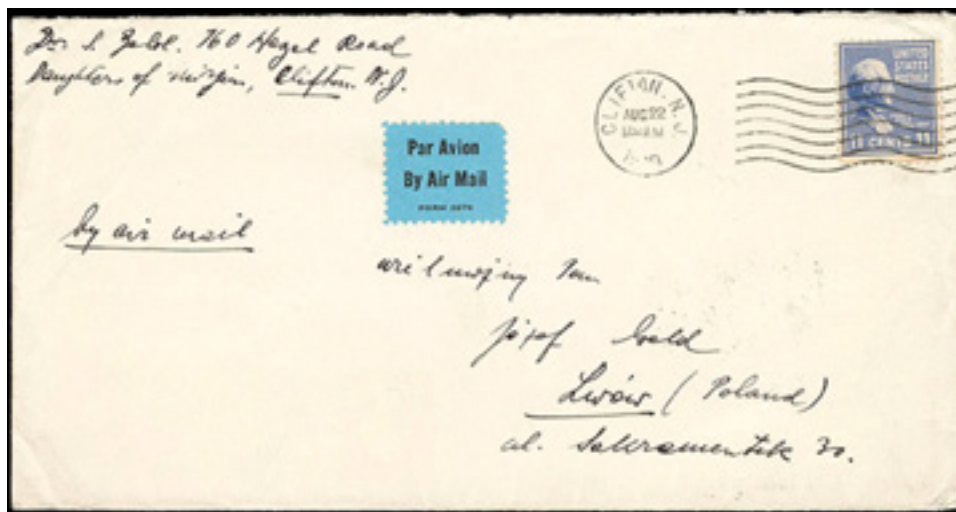 Dr. S. 760 Hazel Road
Daughters of Mirjin, Clifton N.J.
CLIFTON, N.J.
AUG 22
UNITED
STATES
POSTAGE
CENTS
Par Avion
By Air Mail
by air mail
Pan
Józef Gold
Lwów (Poland)
ul. Sakramentek 30.